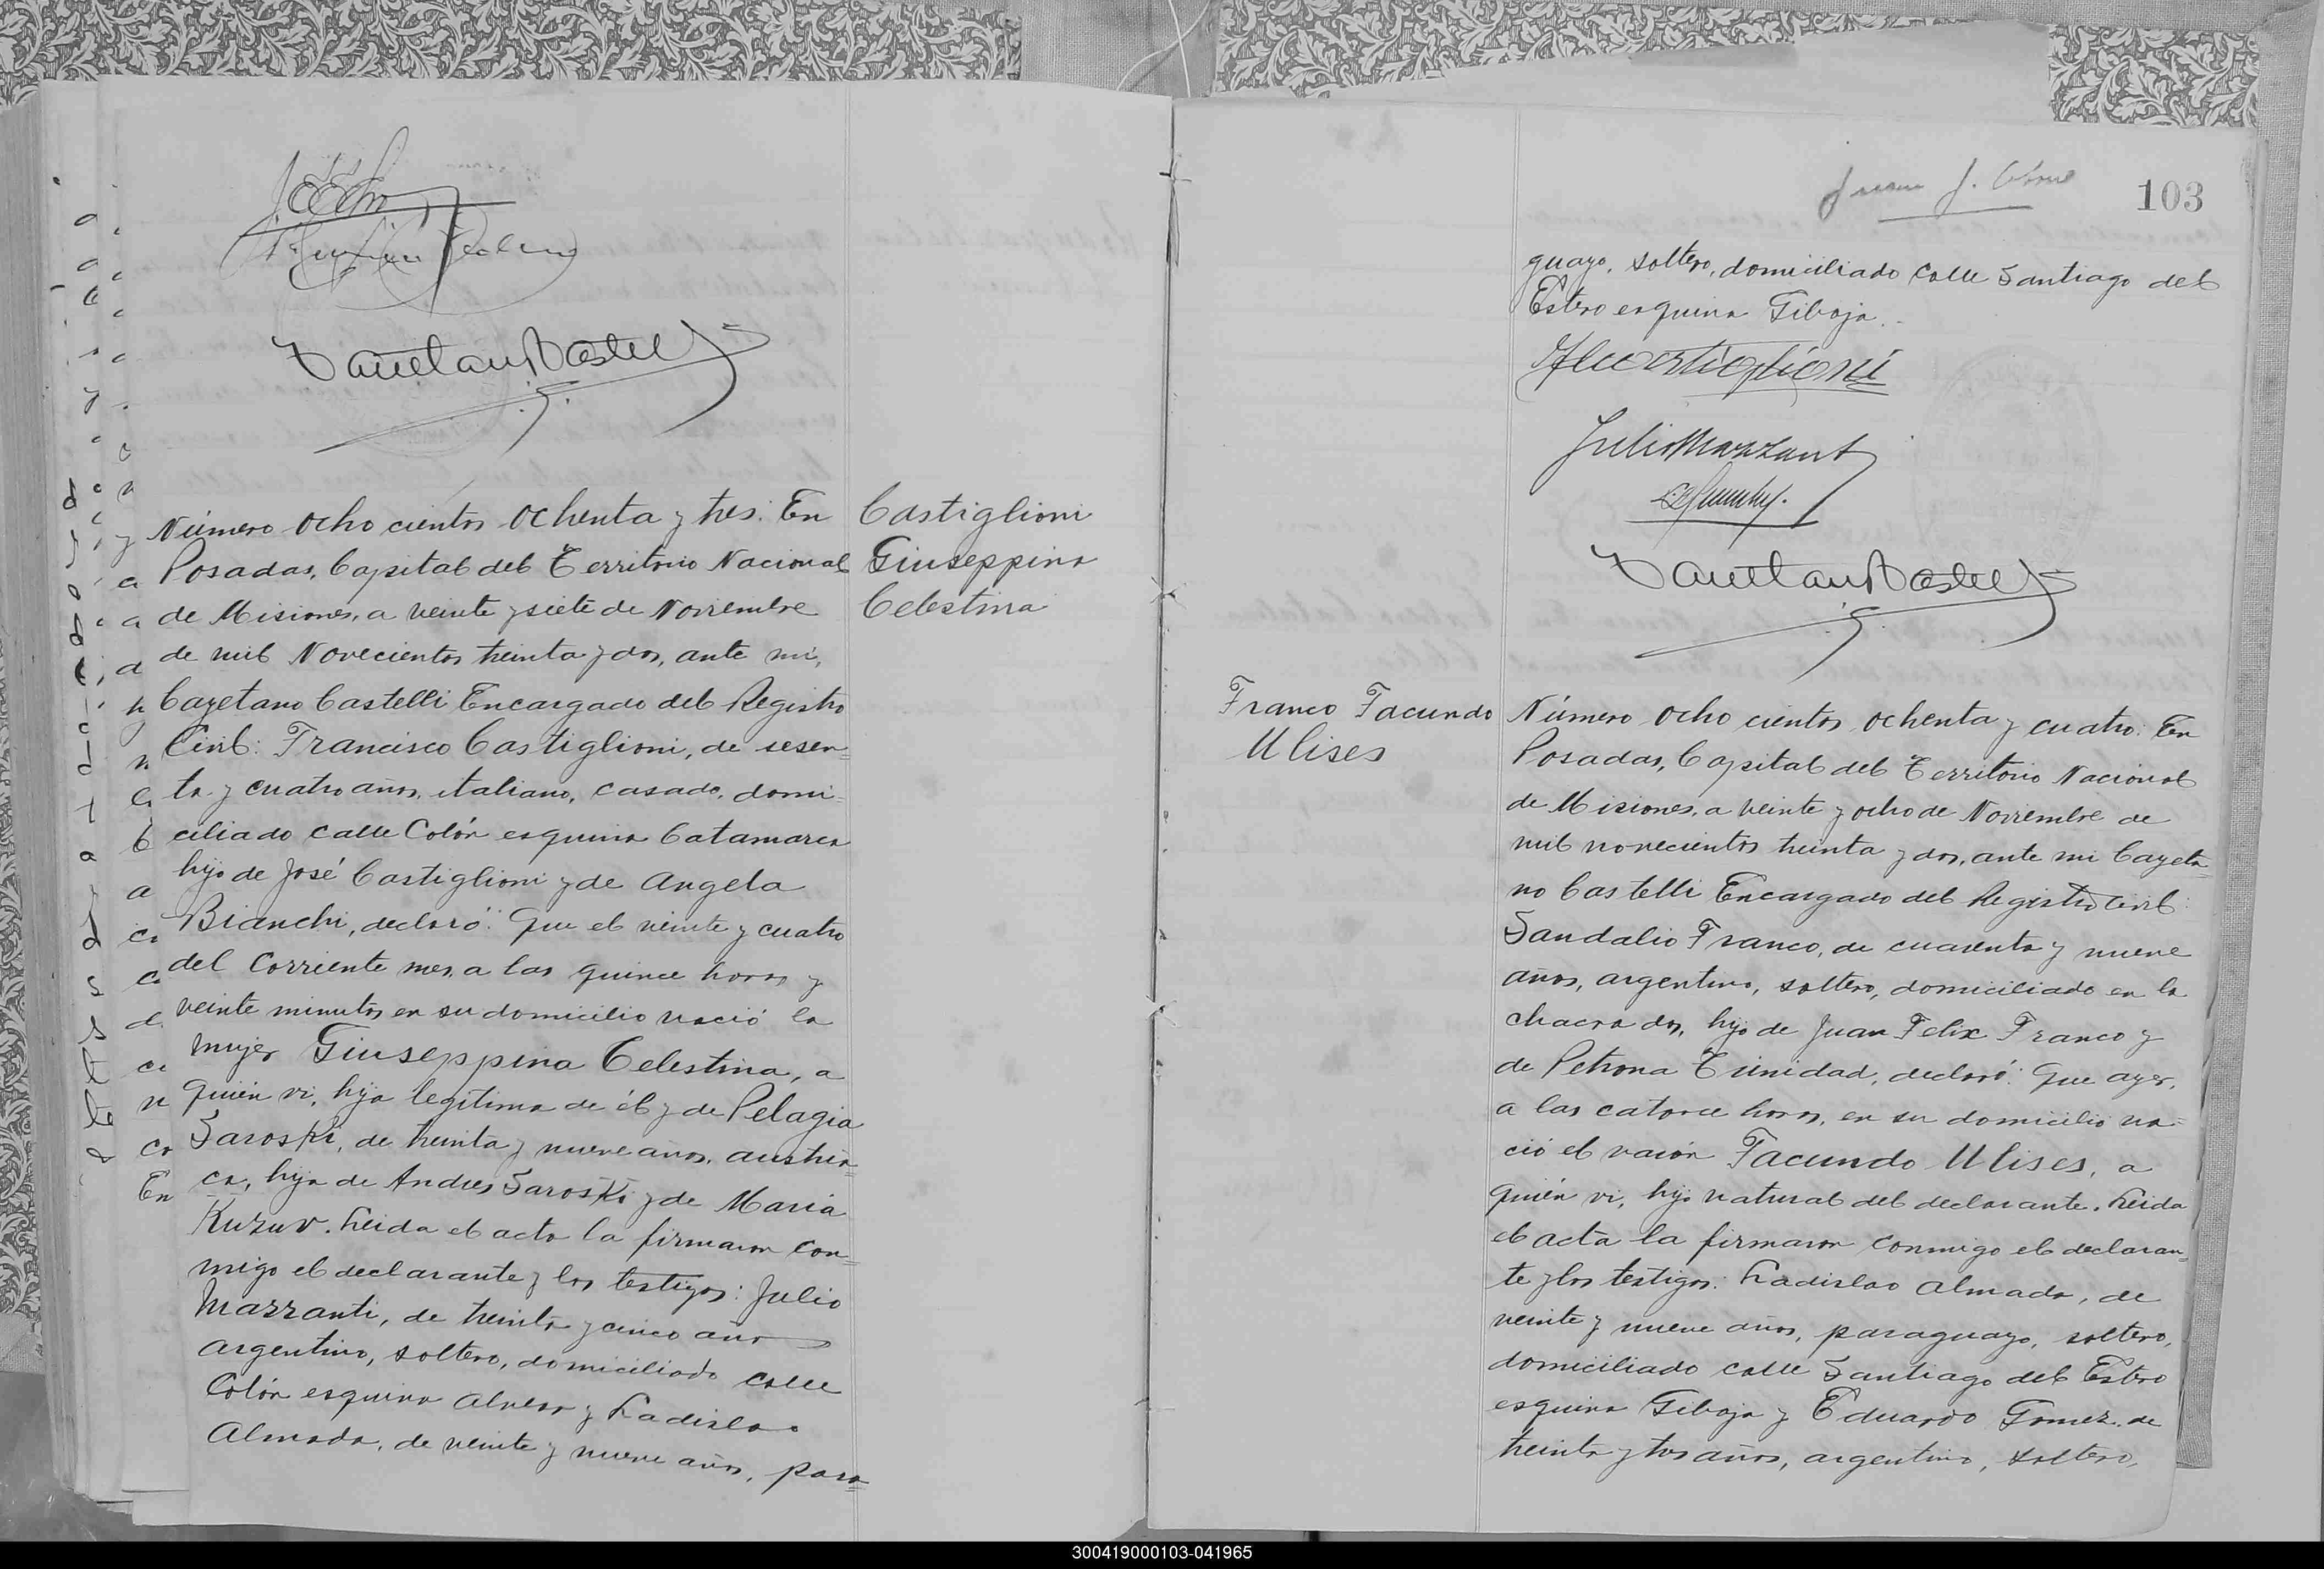 Número ocho cientos ochenta y tres: En
Posadas, Capital del Territorio Nacional
de Misiones, a veinte y siete de Noviembre
de mil novecientos treinta y dos, ante mi,
Cayetano Castelli Encargado del Registro
Civil: Francisco Castiglioni, de sesen=
ta y cuatro años, italiano, casado, domi=
ciliado calle Colón esquina Catamarca
hijo de José Castiglioni y de Angela
Bianchi, declaró: Que el veinte y cuatro
del corriente mes, a las quince horas y
veinte minutos en su domicilio nació la
mujer Giuseppina Celestina, a
quién vi, hija legítima de él y de Pelagia
Saroski, de treinta y nueve años, austria=
ca, hija de Andres Saroski y de Maria
Kuzuv. Leida el acta la firmaron con=
migo el declarante y los testigos: Julio
Mazzanti, de treinta y cinco años
argentino, soltero, domiciliado calle
Colón esquina Alvear y Ladislao
Almada, de veinte y nueve años, para=
Castiglioni
Giuseppina
Celestina
103
guayo, soltero, domiciliado calle Santiago del
Estero esquina Tiboja.
Julio Mazzanti
Franco Facundo
Ulises
Número ocho cientos ochenta y cuatro: En
Posadas, Capital del Territorio Nacional
de Misiones, a veinte y ocho de Noviembre de
mil novecientos treinta y dos, ante mi Cayeta=
no Castelli Encargado del Registro Civil:
Sandalio Franco, de cuarenta y nueve
años, argentino, soltero, domiciliado en la
chacra dos, hijo de Juan Felix Franco y
de Petrona Trinidad, declaró: Que ayer,
a las catorce horas, en su domicilio na=
ció el varón Facundo Ulises, a
quién vi, hijo natural del declarante. Leida
el acta la firmaron conmigo el declaran=
te y los testigos: Ladislao Almada, de
veinte y nueve años, paraguayo, soltero,
domiciliado calle Santiago del Estero
esquina Tiboja y Eduardo Gomez, de
treinta y tres años, argentino, soltero,
300419000103-041965